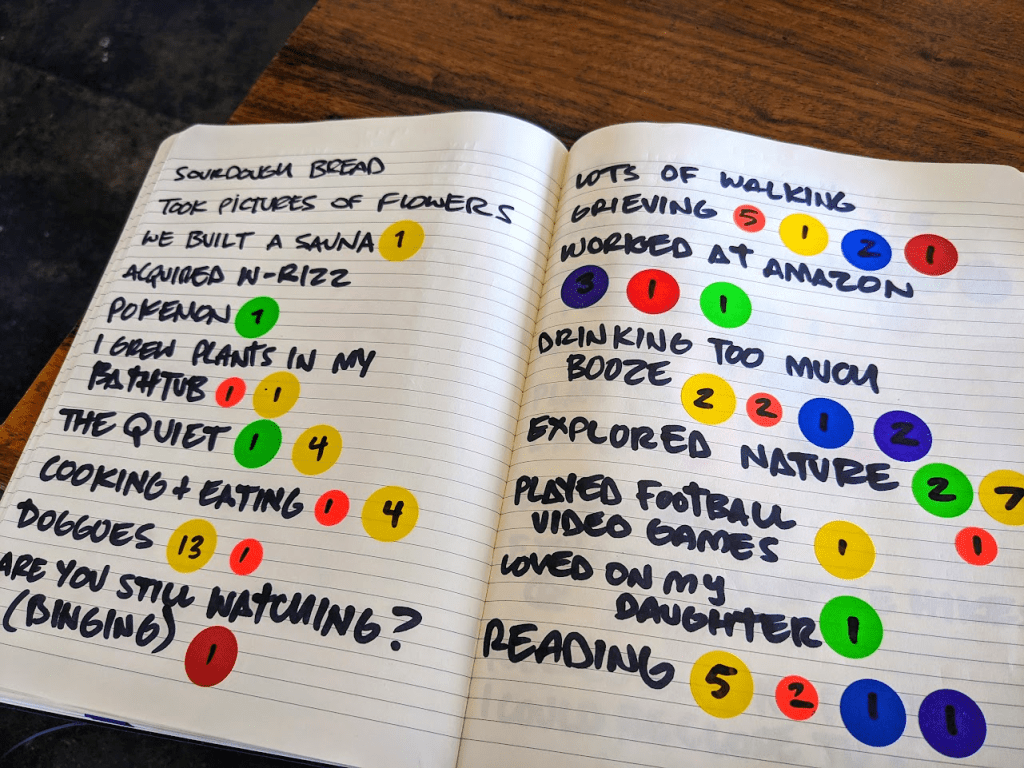 SOURDOUGH BREAD
TOOK PICTURES OF FLOWERS
WE BUILT A SAUNA 1
ACQUIRED W-RIZZ
POKEMON 1
I GREW PLANTS IN MY
BATHTUB 1 1
THE QUIET 1 4
COOKING + EATING 1 4
DOGGOES 13 1
ARE YOU STILL WATCHING?
(BINGING) 1
LOTS OF WALKING
GRIEVING 5 1 2 1
WORKED AT AMAZON
3 1 1
DRINKING TOO MUCH
BOOZE 2 2 1 2
EXPLORED NATURE 2 7
PLAYED FOOTBALL
VIDEO GAMES 1 1
LOVED ON MY
DAUGHTER 1
READING 5 2 1 1